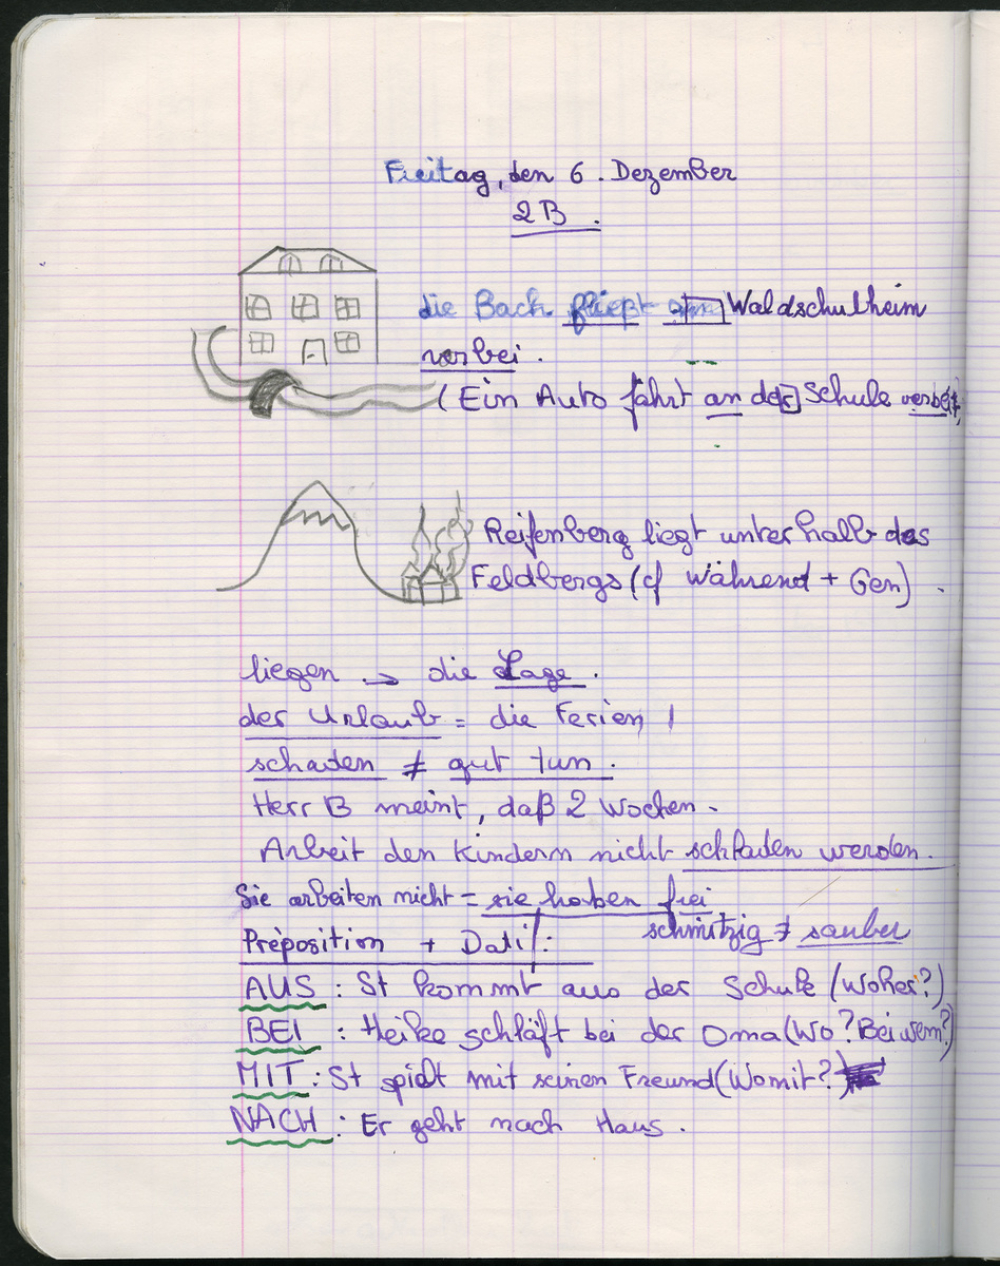 Freitag, den 6. Dezember
2B.
die Bach fließt am Waldschulheim
vorbei.
(Ein Auto fährt an der Schule vorbei)
Reifenberg liegt unterhalb des
Feldbergs (cf während + Gen).
liegen → die Lage.
der Urlaub = die Ferien
schaden ≠ gut tun.
Herr B meint, daß 2 Wochen -
Arbeit den Kindern nicht schaden werden.
Sie arbeiten nicht = sie haben frei
schmitzig ≠ sauber
Préposition + Datif:
AUS : St kommt aus der Schule (Woher?)
BEI : Heike schläft bei der Oma (Wo? Bei wem?)
MIT : St spielt mit seinen Freund (Womit?)
NACH : Er geht nach Haus.